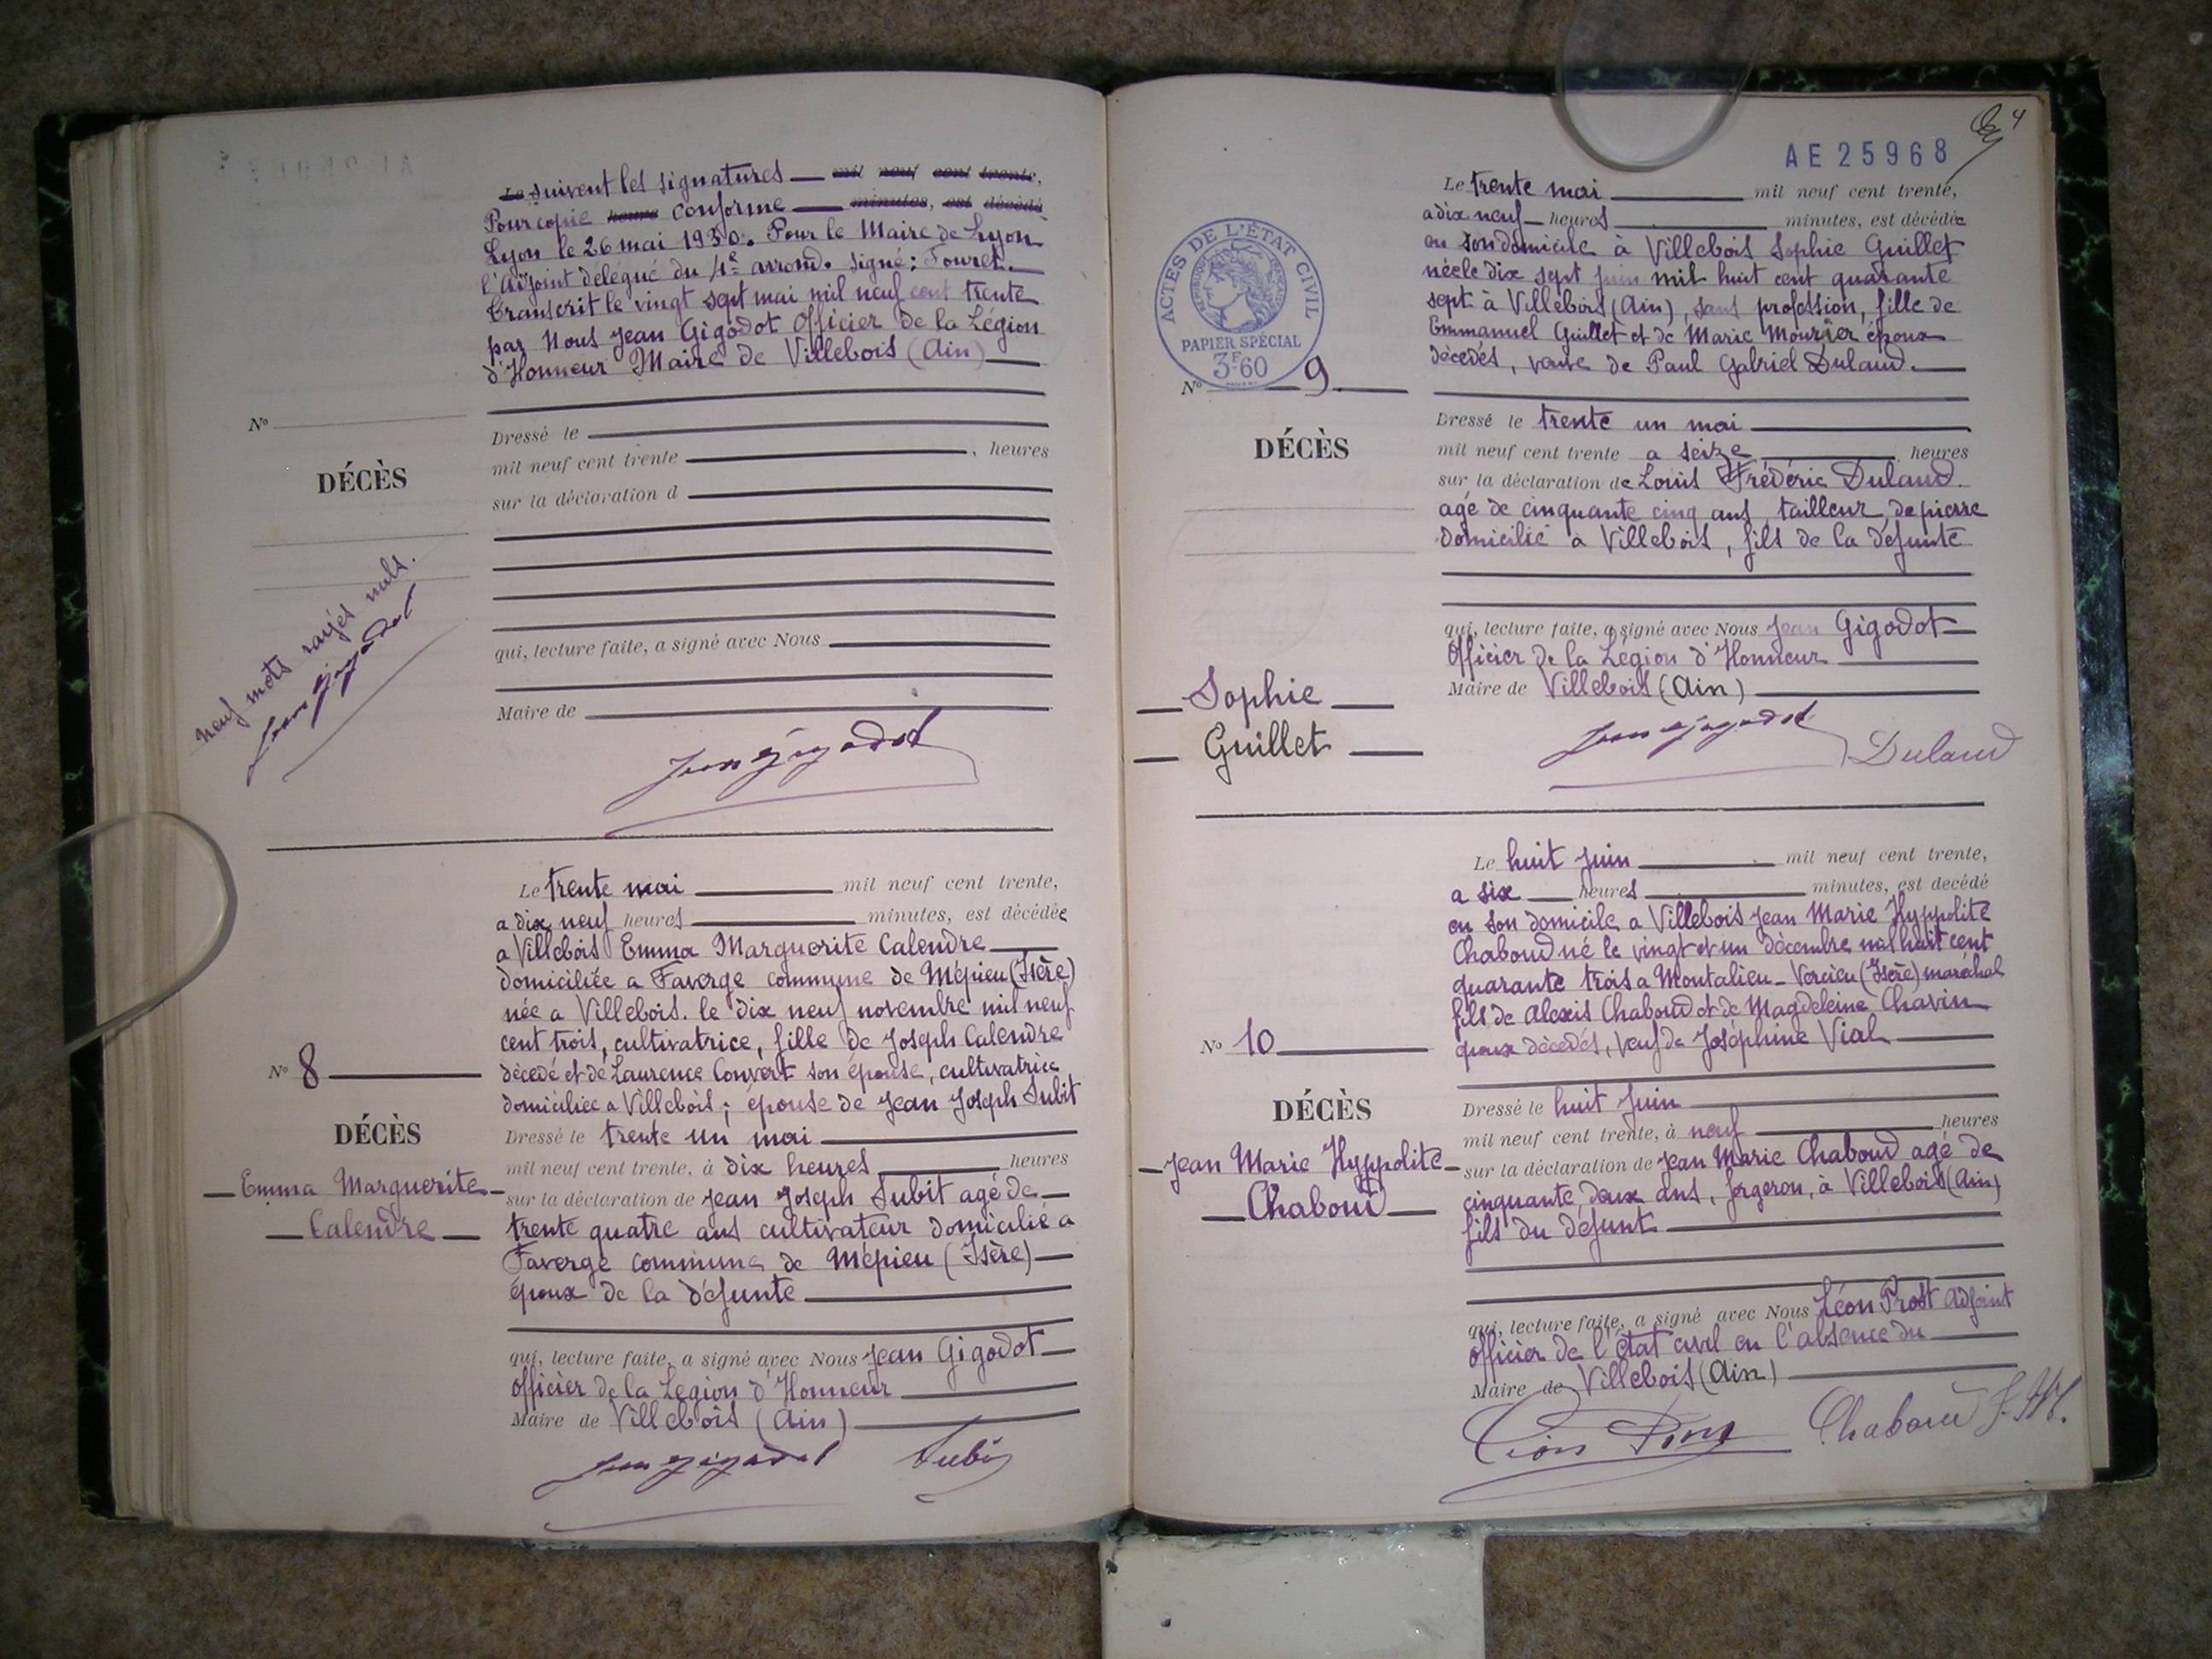 suivent les signatures — mil neuf cent trente,
Pour copie heure conforme — minutes, est décédé
Lyon le 26 mai 1930. Pour le Maire de Lyon
l'Adjoint délégué du 4e arrond. signé: Fouret.
Transcrit le vingt sept mai mil neuf cent trente
par Nous Jean Gigodot Officier de la Légion
d'Honneur Maire de Villebois (Ain)
No
DÉCÈS
Dressé le
mil neuf cent trente , heures
sur la déclaration d
neuf mots rayés nuls.
Jean Gigodot
qui, lecture faite, a signé avec Nous
Maire de
Jean Gigodot
Le trente mai mil neuf cent trente,
a dix neuf heures minutes, est décédée
a Villebois Emma Marguerite Calendre
domiciliée a Faverge commune de Mépieu (Isère)
née a Villebois. le dix neuf novembre mil neuf
cent trois, cultivatrice, fille de Joseph Calendre
décédé et de Laurence Convert son épouse, cultivatrice
domiciliée a Villebois; épouse de Jean Joseph Subit
No 8
DÉCÈS
Emma Marguerite
Calendre
Dressé le trente un mai
mil neuf cent trente, à dix heures heures
sur la déclaration de Jean Joseph Subit agé de
trente quatre ans cultivateur domicilié a
Faverge commune de Mépieu (Isère)
époux de la défunte
qui, lecture faite, a signé avec Nous Jean Gigodot
officier de la Legion d'Honneur
Maire de Villebois (Ain)
Jean Gigodot Subit
4
AE 25968
ACTES DE L'ÉTAT CIVIL
RÉPUBLIQUE FRANÇAISE
PAPIER SPÉCIAL
3F60
Le trente mai mil neuf cent trente,
a dix neuf heures minutes, est décédée
en son domicile à Villebois Sophie Guillet
née le dix sept juin mil huit cent quarante
sept à Villebois (Ain), sans profession, fille de
Emmanuel Guillet et de Marie Mourier époux
décédés, veuve de Paul Gabriel Dulaud.
No 9
DÉCÈS
Sophie
Guillet
Dressé le trente un mai
mil neuf cent trente a seize heures
sur la déclaration de Louis Frédéric Dulaud.
agé de cinquante cinq ans tailleur de pierre
domicilié a Villebois, fils de la défunte
qui, lecture faite, a signé avec Nous Jean Gigodot
Officier de la Légion d'Honneur
Maire de Villebois (Ain)
Jean Gigodot Dulaud
Le huit juin mil neuf cent trente,
a six heures minutes, est decédé
en son domicile a Villebois Jean Marie Hyppolite
Chaboud né le vingt et un décembre mil huit cent
quarante trois a Montalieu-Vercieu (Isère) maréchal
fils de Alexis Chaboud et de Magdeleine Chavin
époux décédés, veuf de Joséphine Vial
No 10
DÉCÈS
Jean Marie Hyppolite
Chaboud
Dressé le huit juin
mil neuf cent trente, à neuf heures
sur la déclaration de Jean Marie Chaboud agé de
cinquante deux ans, forgeron, à Villebois (Ain)
fils du défunt
qui, lecture faite, a signé avec Nous Léon Prost Adjoint
officier de l'état civil en l'absence du
Maire de Villebois (Ain)
Léon Prost Chaboud J. M.